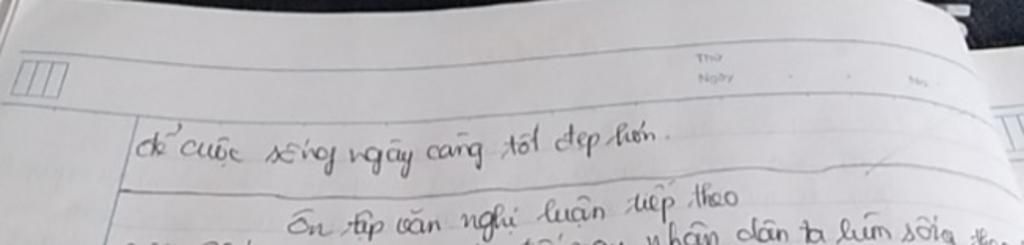 Thứ
Ngày No.
để cuộc sống ngày càng tốt đẹp hơn.
Ôn tập văn nghị luận tiếp theo
nhân dân ta